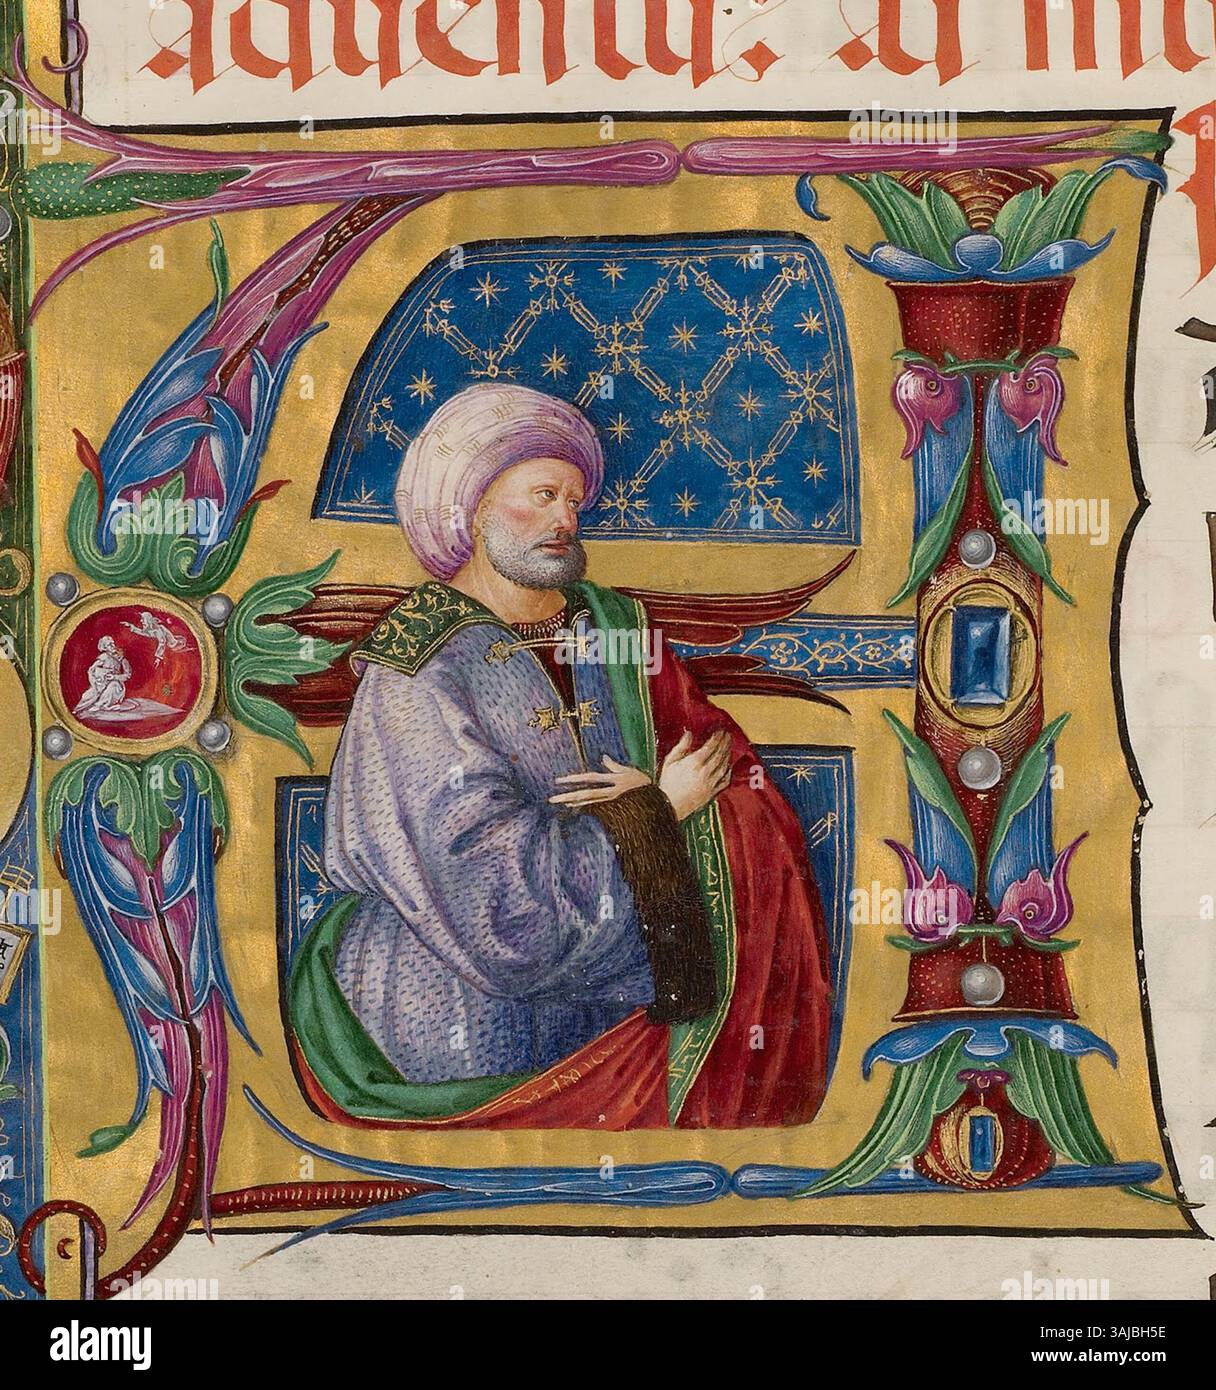 aduentu.
alamy
Image ID: 3AJBH5E
www.alamy.com